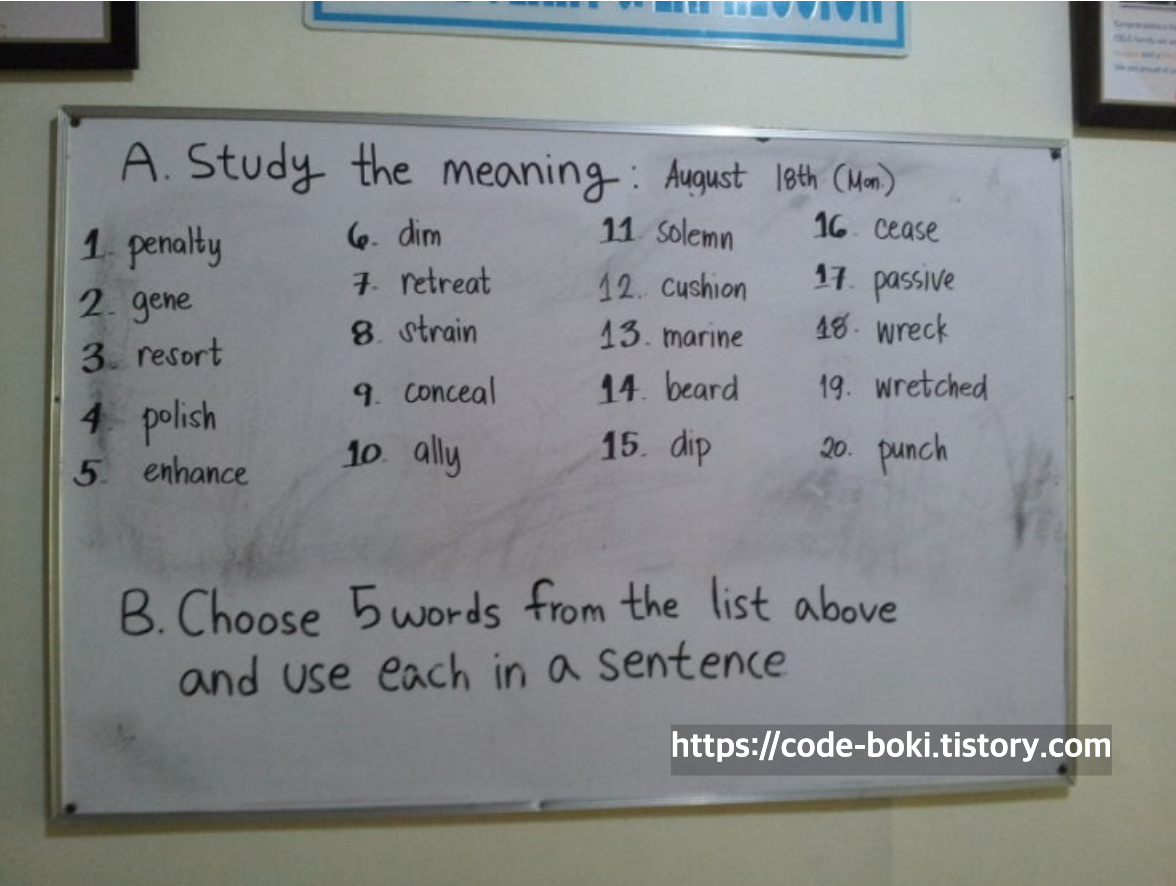 A. Study the meaning: August 18th (Mon.)
1. penalty
2. gene
3. resort
4. polish
5. enhance
6. dim
7. retreat
8. strain
9. conceal
10. ally
11 solemn
12. cushion
13. marine
14. beard
15. dip
16. cease
17. passive
18. wreck
19. wretched
20. punch
B. Choose 5 words from the list above
and use each in a sentence
https://code-boki.tistory.com